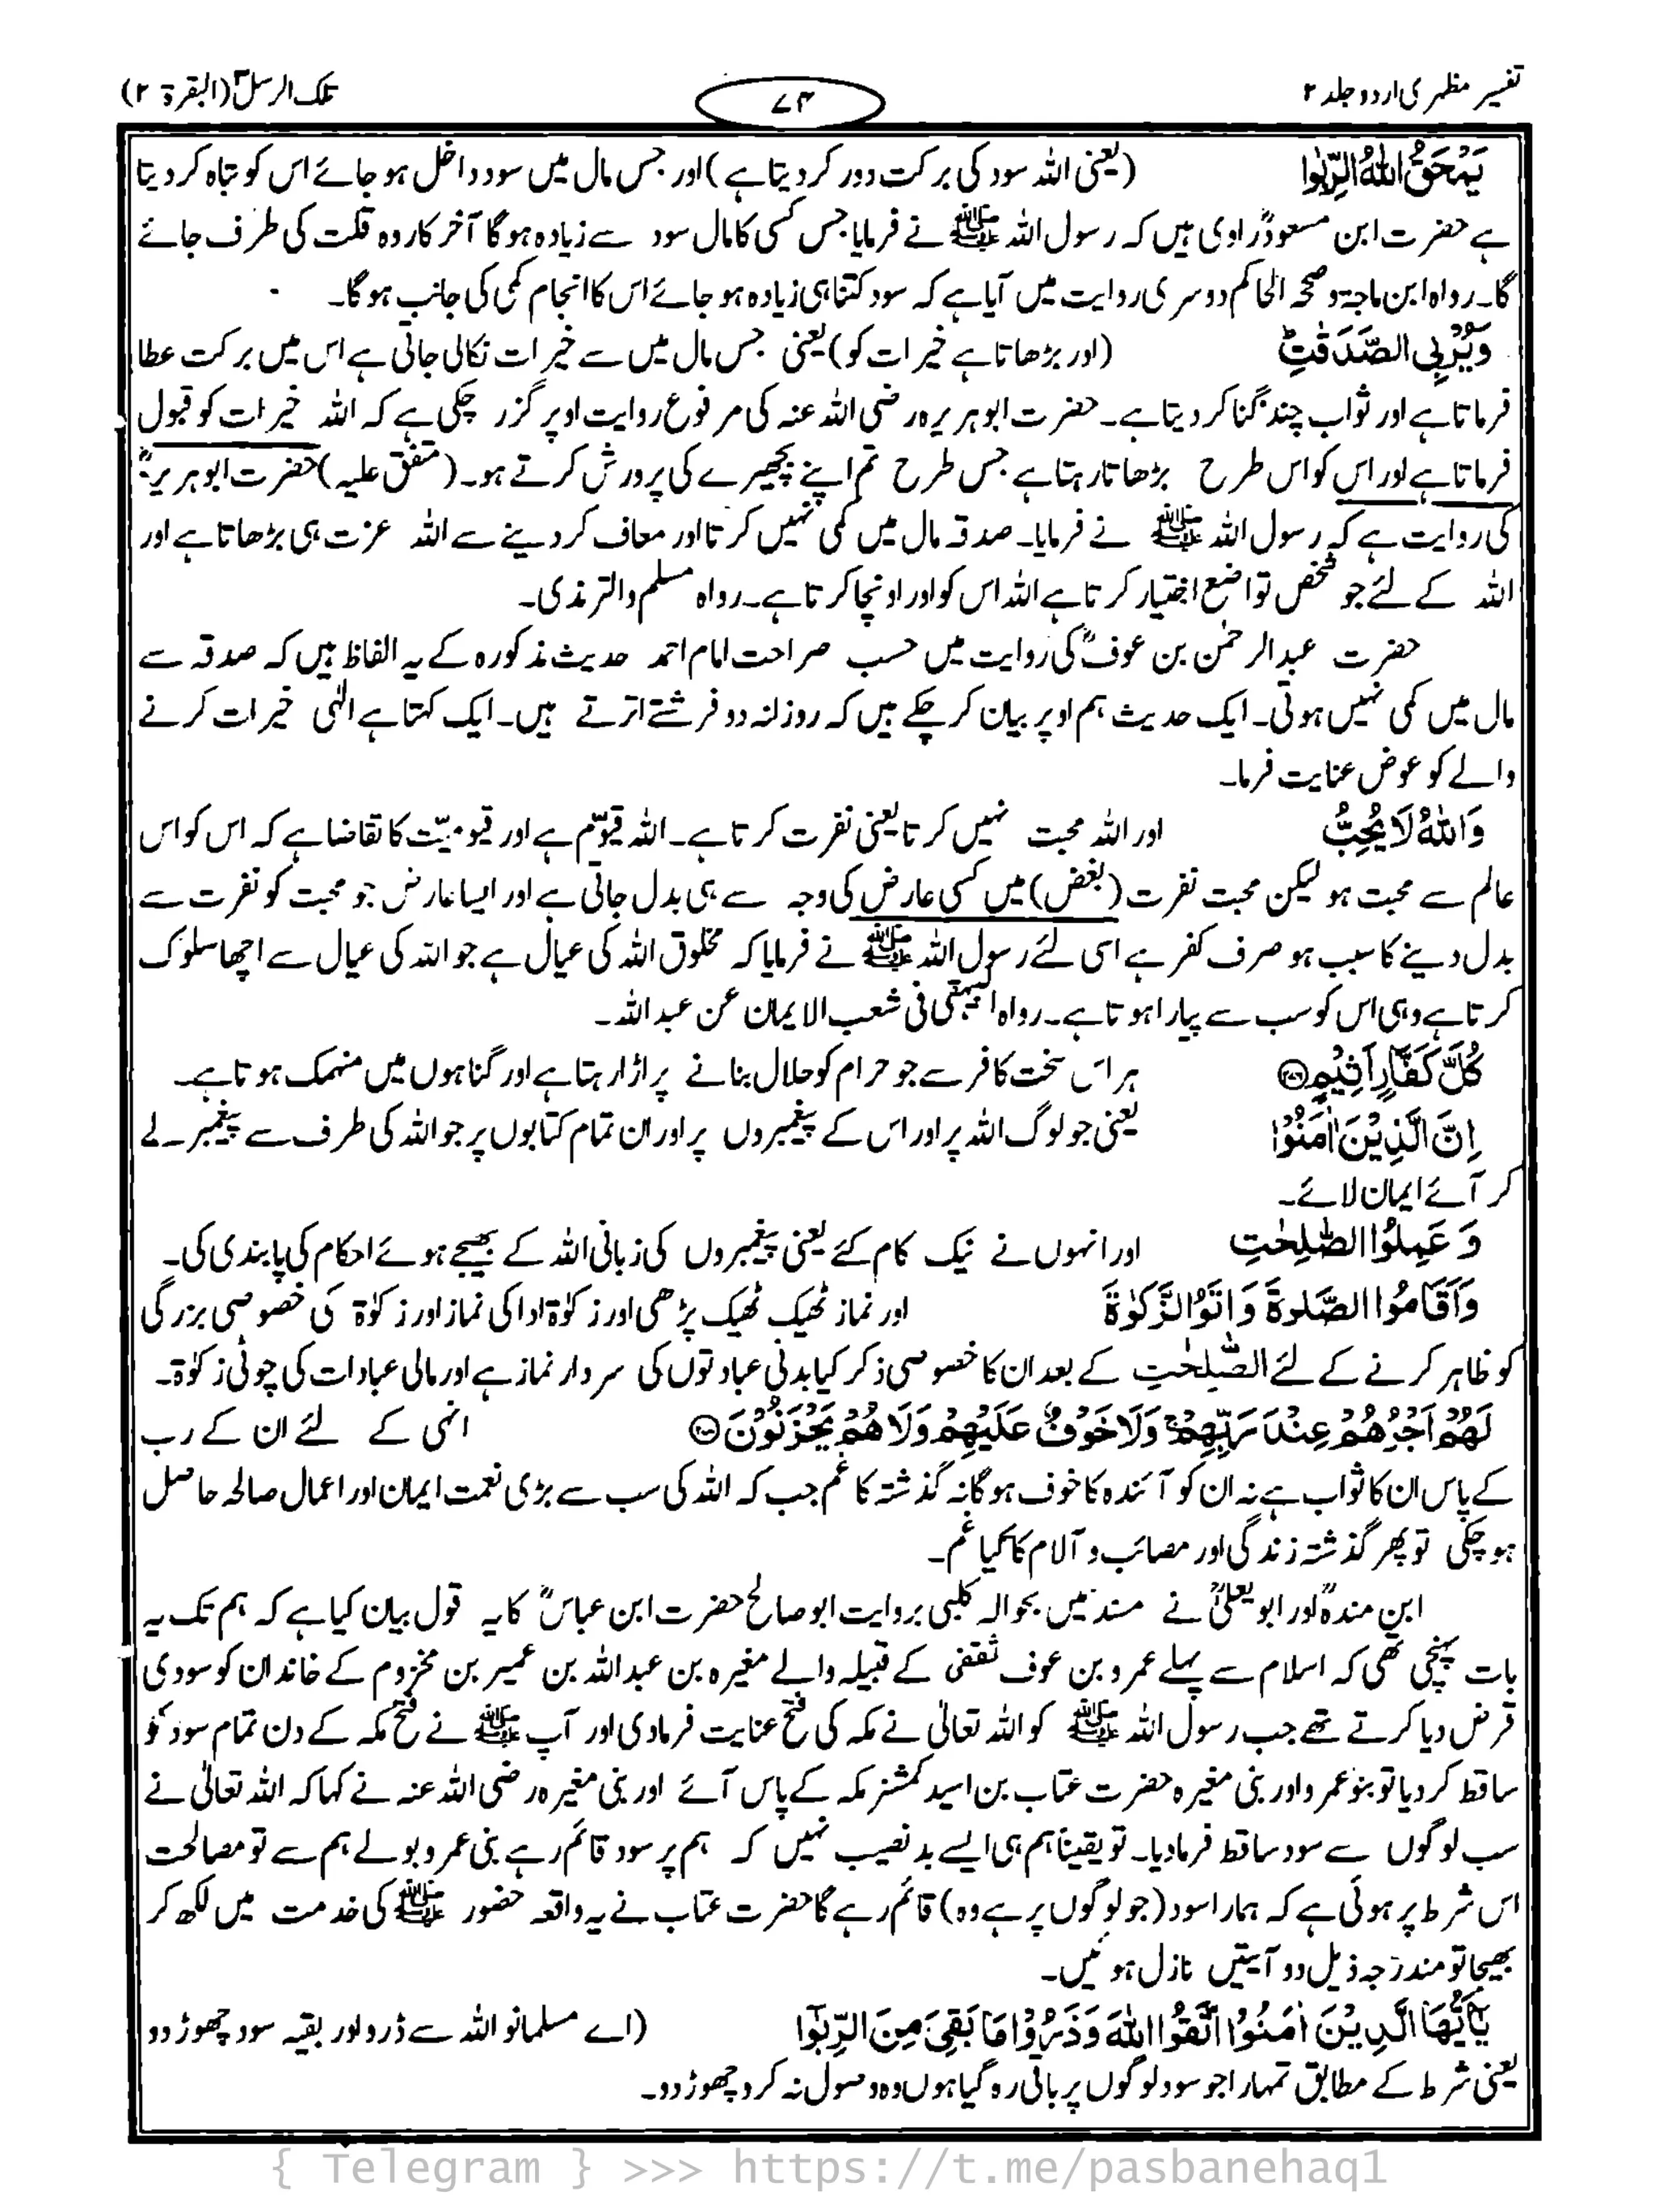 تفسیر مظہری اردو جلد ۲
۷۴
تلک الرسل ۳ (البقرۃ ۲)
يَمْحَقُ اللّٰهُ الرِّبٰوا (یعنی اللہ سود کی برکت دور کر دیتا ہے) اور جس مال میں سود داخل ہو جائے اس کو تباہ کر دیتا
ہے حضرت ابن مسعودؓ راوی ہیں کہ رسول اللہ ﷺ نے فرمایا جس کسی کا مال سود سے زیادہ ہوگا آخر کار وہ قلت کی طرف جائے
گا۔ رواہ ابن ماجۃ و صححہ الحاکم دوسری روایت میں آیا ہے کہ سود کتنا ہی زیادہ ہو جائے اس کا انجام کمی کی جانب ہوگا۔
وَيُرْبِي الصَّدَقٰتِ ؕ (اور بڑھاتا ہے خیرات کو) یعنی جس مال میں سے خیرات نکالی جاتی ہے اس میں برکت عطا
فرماتا ہے اور ثواب چند گنا کر دیتا ہے۔ حضرت ابوہریرہ رضی اللہ عنہ کی مرفوع روایت اوپر گزر چکی ہے کہ اللہ خیرات کو قبول
فرماتا ہے اور اس کو اس طرح بڑھاتا رہتا ہے جس طرح تم اپنے بچھیرے کی پرورش کرتے ہو۔ (متفق علیہ) حضرت ابوہریرہؓ
کی روایت ہے کہ رسول اللہ ﷺ نے فرمایا۔ صدقہ مال میں کمی نہیں کرتا اور معاف کر دینے سے اللہ عزت ہی بڑھاتا ہے اور
اللہ کے لئے جو شخص تواضع اختیار کرتا ہے اللہ اس کو اور اونچا کرتا ہے۔ رواہ مسلم والترمذی۔
حضرت عبدالرحمٰن بن عوفؓ کی روایت میں حسب صراحت امام احمد حدیث مذکورہ کے یہ الفاظ ہیں کہ صدقہ سے
مال میں کمی نہیں ہوتی۔ ایک حدیث ہم اوپر بیان کر چکے ہیں کہ روزانہ دو فرشتے اترتے ہیں۔ ایک کہتا ہے الٰہی خیرات کرنے
والے کو عوض عنایت فرما۔
وَاللّٰهُ لَا يُحِبُّ اور اللہ محبت نہیں کرتا یعنی نفرت کرتا ہے۔ اللہ قیوّم ہے اور قیومیّت کا تقاضا ہے کہ اس کو اس
عالم سے محبت ہو لیکن محبت نفرت (بغض) میں کسی عارض کی وجہ سے ہی بدل جاتی ہے اور ایسا عارض جو محبت کو نفرت سے
بدل دینے کا سبب ہو صرف کفر ہے اسی لئے رسول اللہ ﷺ نے فرمایا کہ مخلوق اللہ کی عیال ہے جو اللہ کی عیال سے اچھا سلوک
کرتا ہے وہی اس کو سب سے پیارا ہوتا ہے۔ رواہ البیہقی فی شعب الایمان عن عبداللہ۔
كُلَّ كَفَّارٍ اَثِيْمٍ ۝۲۷۶ ہر اس سخت کافر سے جو حرام کو حلال بنانے پر اڑا رہتا ہے اور گناہوں میں منہمک ہوتا ہے۔
اِنَّ الَّذِيْنَ اٰمَنُوْا یعنی جو لوگ اللہ پر اور اس کے پیغمبروں پر اور ان تمام کتابوں پر جو اللہ کی طرف سے پیغمبر لے
کر آئے ایمان لائے۔
وَ عَمِلُوا الصّٰلِحٰتِ اور انہوں نے نیک کام کئے یعنی پیغمبروں کی زبانی اللہ کے بھیجے ہوئے احکام کی پابندی کی۔
وَاَقَامُوا الصَّلٰوةَ وَاٰتَوُا الزَّكٰوةَ اور نماز ٹھیک ٹھیک پڑھی اور زکوٰۃ ادا کی نماز اور زکوٰۃ کی خصوصی بزرگی
کو ظاہر کرنے کے لئے الصّٰلِحٰتِ کے بعد ان کا خصوصی ذکر کیا بدنی عبادتوں کی سردار نماز ہے اور مالی عبادات کی چوٹی زکوٰۃ۔
لَهُمْ اَجْرُهُمْ عِنْدَ رَبِّهِمْ ۚ وَلَا خَوْفٌ عَلَيْهِمْ وَلَا هُمْ يَحْزَنُوْنَ ۝ انہی کے لئے ان کے رب
کے پاس ان کا ثواب ہے نہ ان کو آئندہ کا خوف ہوگا نہ گذشتہ کا غم جب کہ اللہ کی سب سے بڑی نعمت ایمان اور اعمال صالحہ حاصل
ہو چکی تو پھر گذشتہ زندگی اور مصائب و آلام کا کیا غم۔
ابن مندہؒ اور ابو یعلیٰؒ نے مسند میں بحوالہ کلبی بروایت ابو صالح حضرت ابن عباسؓ کا یہ قول بیان کیا ہے کہ ہم تک یہ
بات پہنچی تھی کہ اسلام سے پہلے عمرو بن عوف ثقفی کے قبیلہ والے مغیرہ بن عبداللہ بن عمیر بن مخزوم کے خاندان کو سودی
قرض دیا کرتے تھے جب رسول اللہ ﷺ کو اللہ تعالیٰ نے مکہ کی فتح عنایت فرما دی اور آپ ﷺ نے فتح مکہ کے دن تمام سود کو
ساقط کر دیا تو بنو عمرو اور بنی مغیرہ حضرت عتاب بن اسید کمشنر مکہ کے پاس آئے اور بنی مغیرہ رضی اللہ عنہ نے کہا کہ اللہ تعالیٰ نے
سب لوگوں سے سود ساقط فرما دیا۔ تو یقیناً ہم ہی ایسے بد نصیب نہیں کہ ہم پر سود قائم رہے بنی عمرو بولے ہم سے تو مصالحت
اس شرط پر ہوئی ہے کہ ہمارا سود (جو لوگوں پر ہے وہ) قائم رہے گا حضرت عتاب نے یہ واقعہ حضور ﷺ کی خدمت میں لکھ کر
بھیجا تو مندرجہ ذیل دو آیتیں نازل ہوئیں۔
يٰٓاَيُّهَا الَّذِيْنَ اٰمَنُوْا اتَّقُوا اللّٰهَ وَذَرُوْا مَا بَقِيَ مِنَ الرِّبٰٓوا (اے مسلمانو اللہ سے ڈرو اور بقیہ سود چھوڑ دو
یعنی شرط کے مطابق تمہارا جو سود لوگوں پر باقی رہ گیا ہوں وہ وصول نہ کرو چھوڑ دو۔
{ Telegram } >>> https://t.me/pasbanehaq1